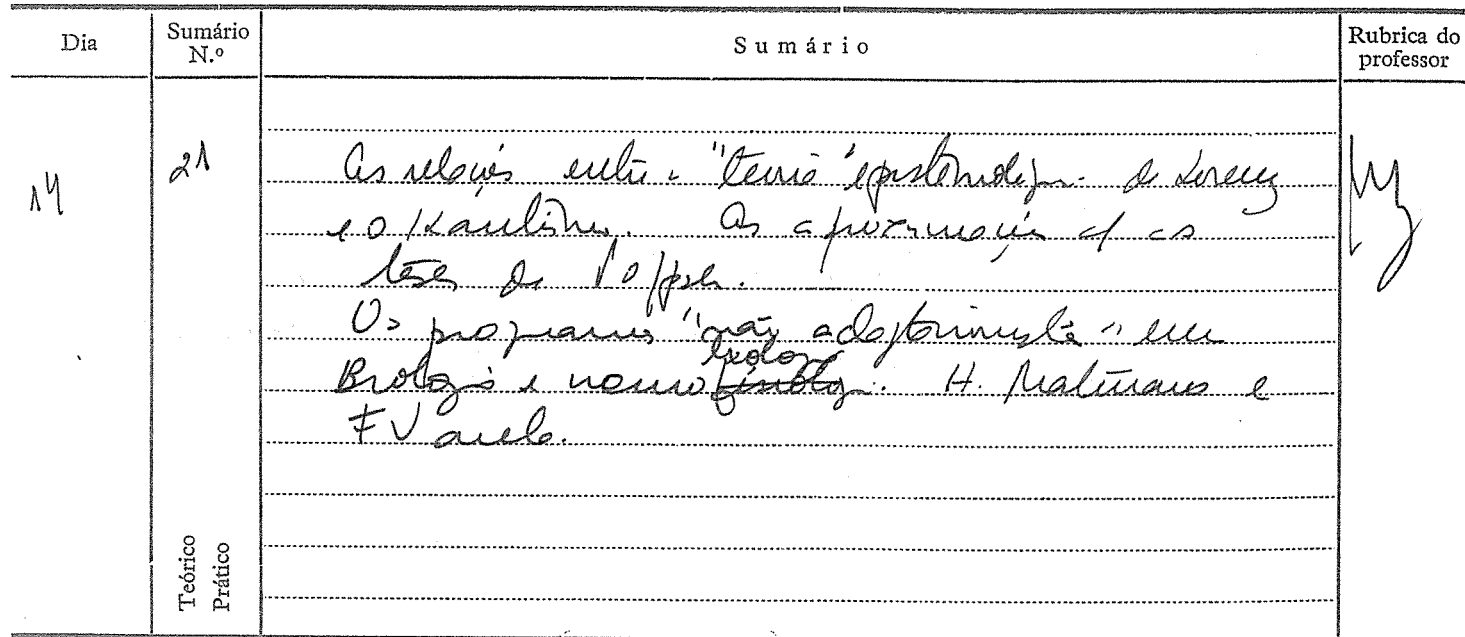 Dia
Sumário N.º
Sumário
Rubrica do professor
14
21
As relações entre a "teoria" epistemológica de Lorenz
e o Kantismo. As aproximações c/ as
teses de Popper.
Os programas "não adaptacionista" em
Biologia e H. Maturana e
F Varela.
Teórico
Prático